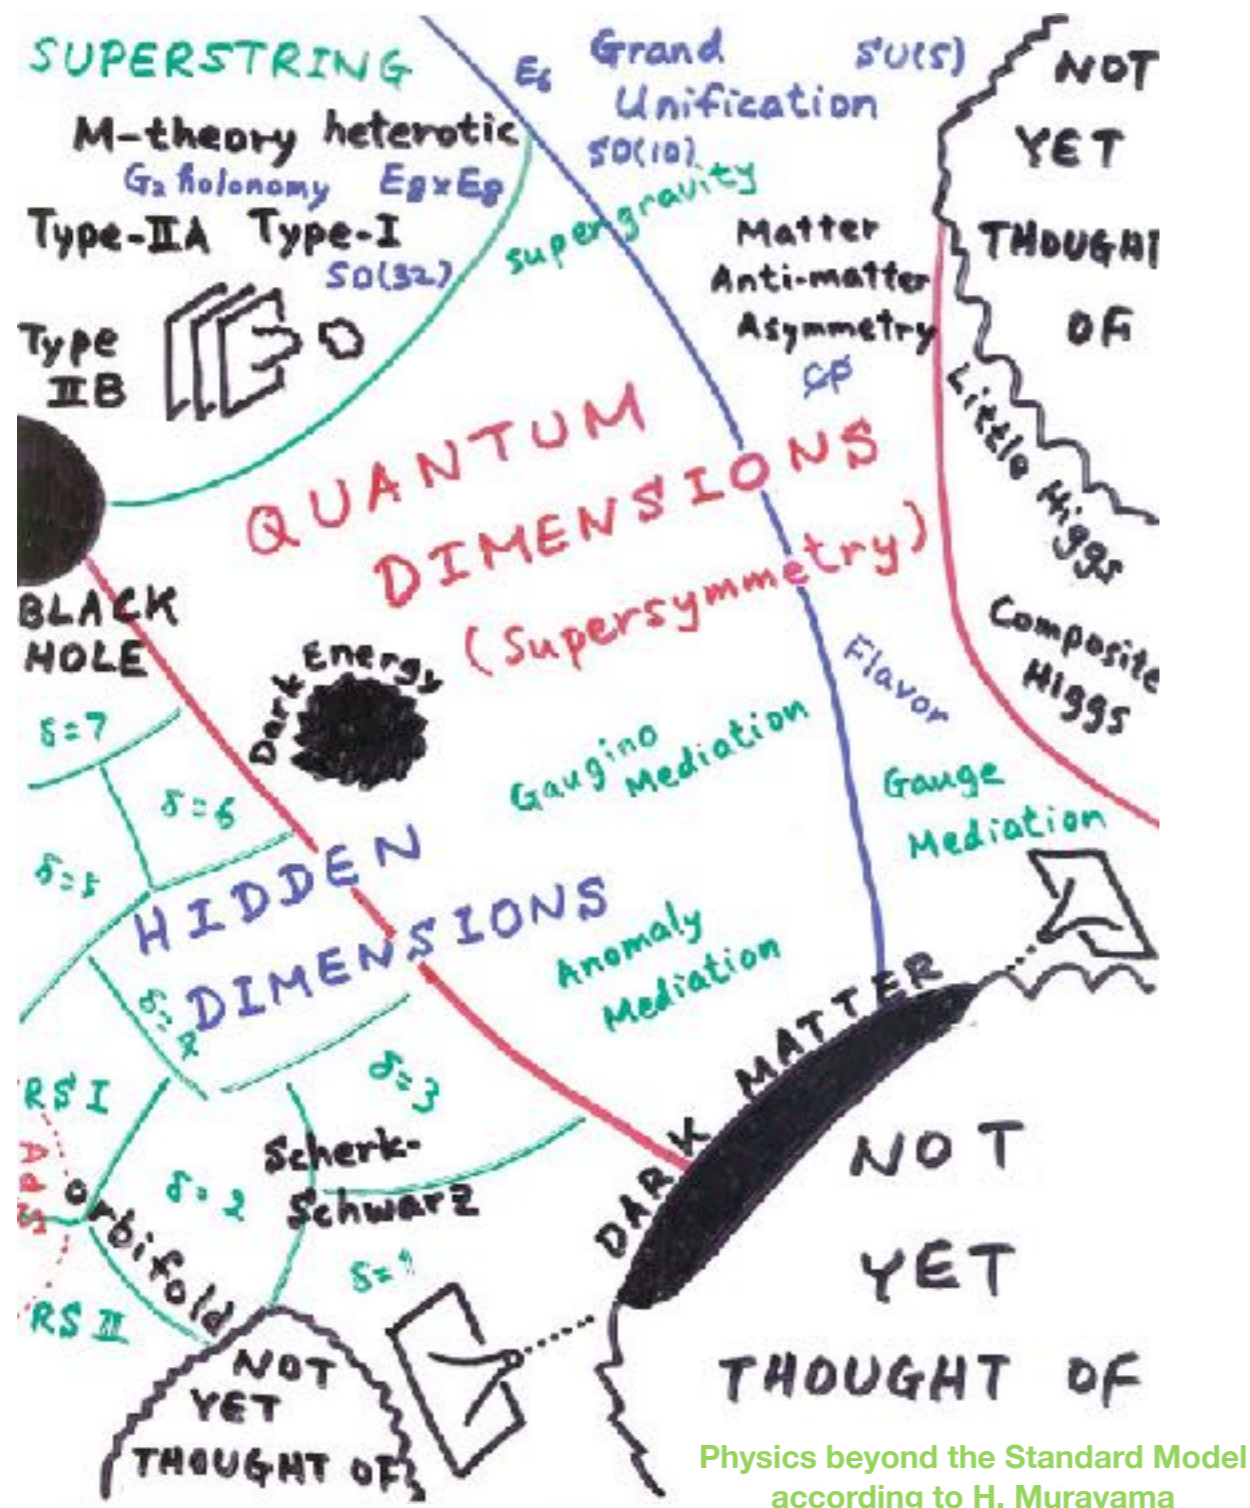 SUPERSTRING
M-theory heterotic
G₂ holonomy E8xE8
Type-IIA Type-I
SO(32)
Type
IIB
E₆
Grand
Unification
SU(5)
SO(10)
supergravity
Matter
Anti-matter
Asymmetry
CP
NOT
YET
THOUGHT
OF
Little Higgs
Composite
Higgs
QUANTUM
DIMENSIONS
(Supersymmetry)
BLACK
HOLE
Dark Energy
Flavor
Gaugino
Mediation
Gauge
Mediation
Anomaly
Mediation
δ=7
δ=6
δ=5
HIDDEN
DIMENSIONS
δ=4
δ=3
RS I
AdS
Orbifold
δ=2
Scherk-
Schwarz
δ=1
RS II
DARK MATTER
NOT
YET
THOUGHT OF
NOT
YET
THOUGHT OF
Physics beyond the Standard Model
according to H. Murayama